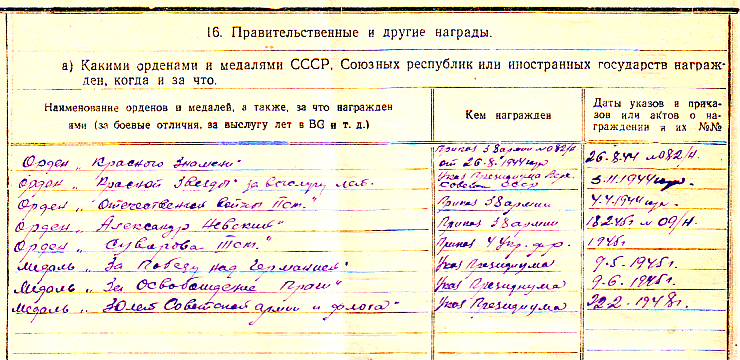 16. Правительственные и другие награды.
а) Какими орденами и медалями СССР, Союзных республик или иностранных государств награж-
ден, когда и за что.
Наименование орденов и медалей, а также, за что награжден
ими (за боевые отличия, за выслугу лет в ВС и т. д.)
Кем награжден
Даты указов и прика-
зов или актов о на-
граждении и их №№
Орден „Красного Знамени"
Приказ 38 армии № 082/н
от 26.8.1944
26.8.44 № 082/н.
Орден „Красной Звезды" за выслугу лет.
Указ Президиума Верх.
Совета СССР
3.11.1944
Орден „Отечественной войны
Приказ 38 армии
4.4.1944
Орден „Александр Невский"
Приказ 38 армии
№ 09/н
Орден „Суворова
Приказ 4 Укр. фр.
1945г.
Медаль „За Победу над Германией"
Указ Президиума
9.5.1945г.
Медаль „За Освобождение Праги"
Указ Президиума
9.6.1945г.
Медаль „30 лет Советской армии и флота"
Указ Президиума
22.2.1948г.